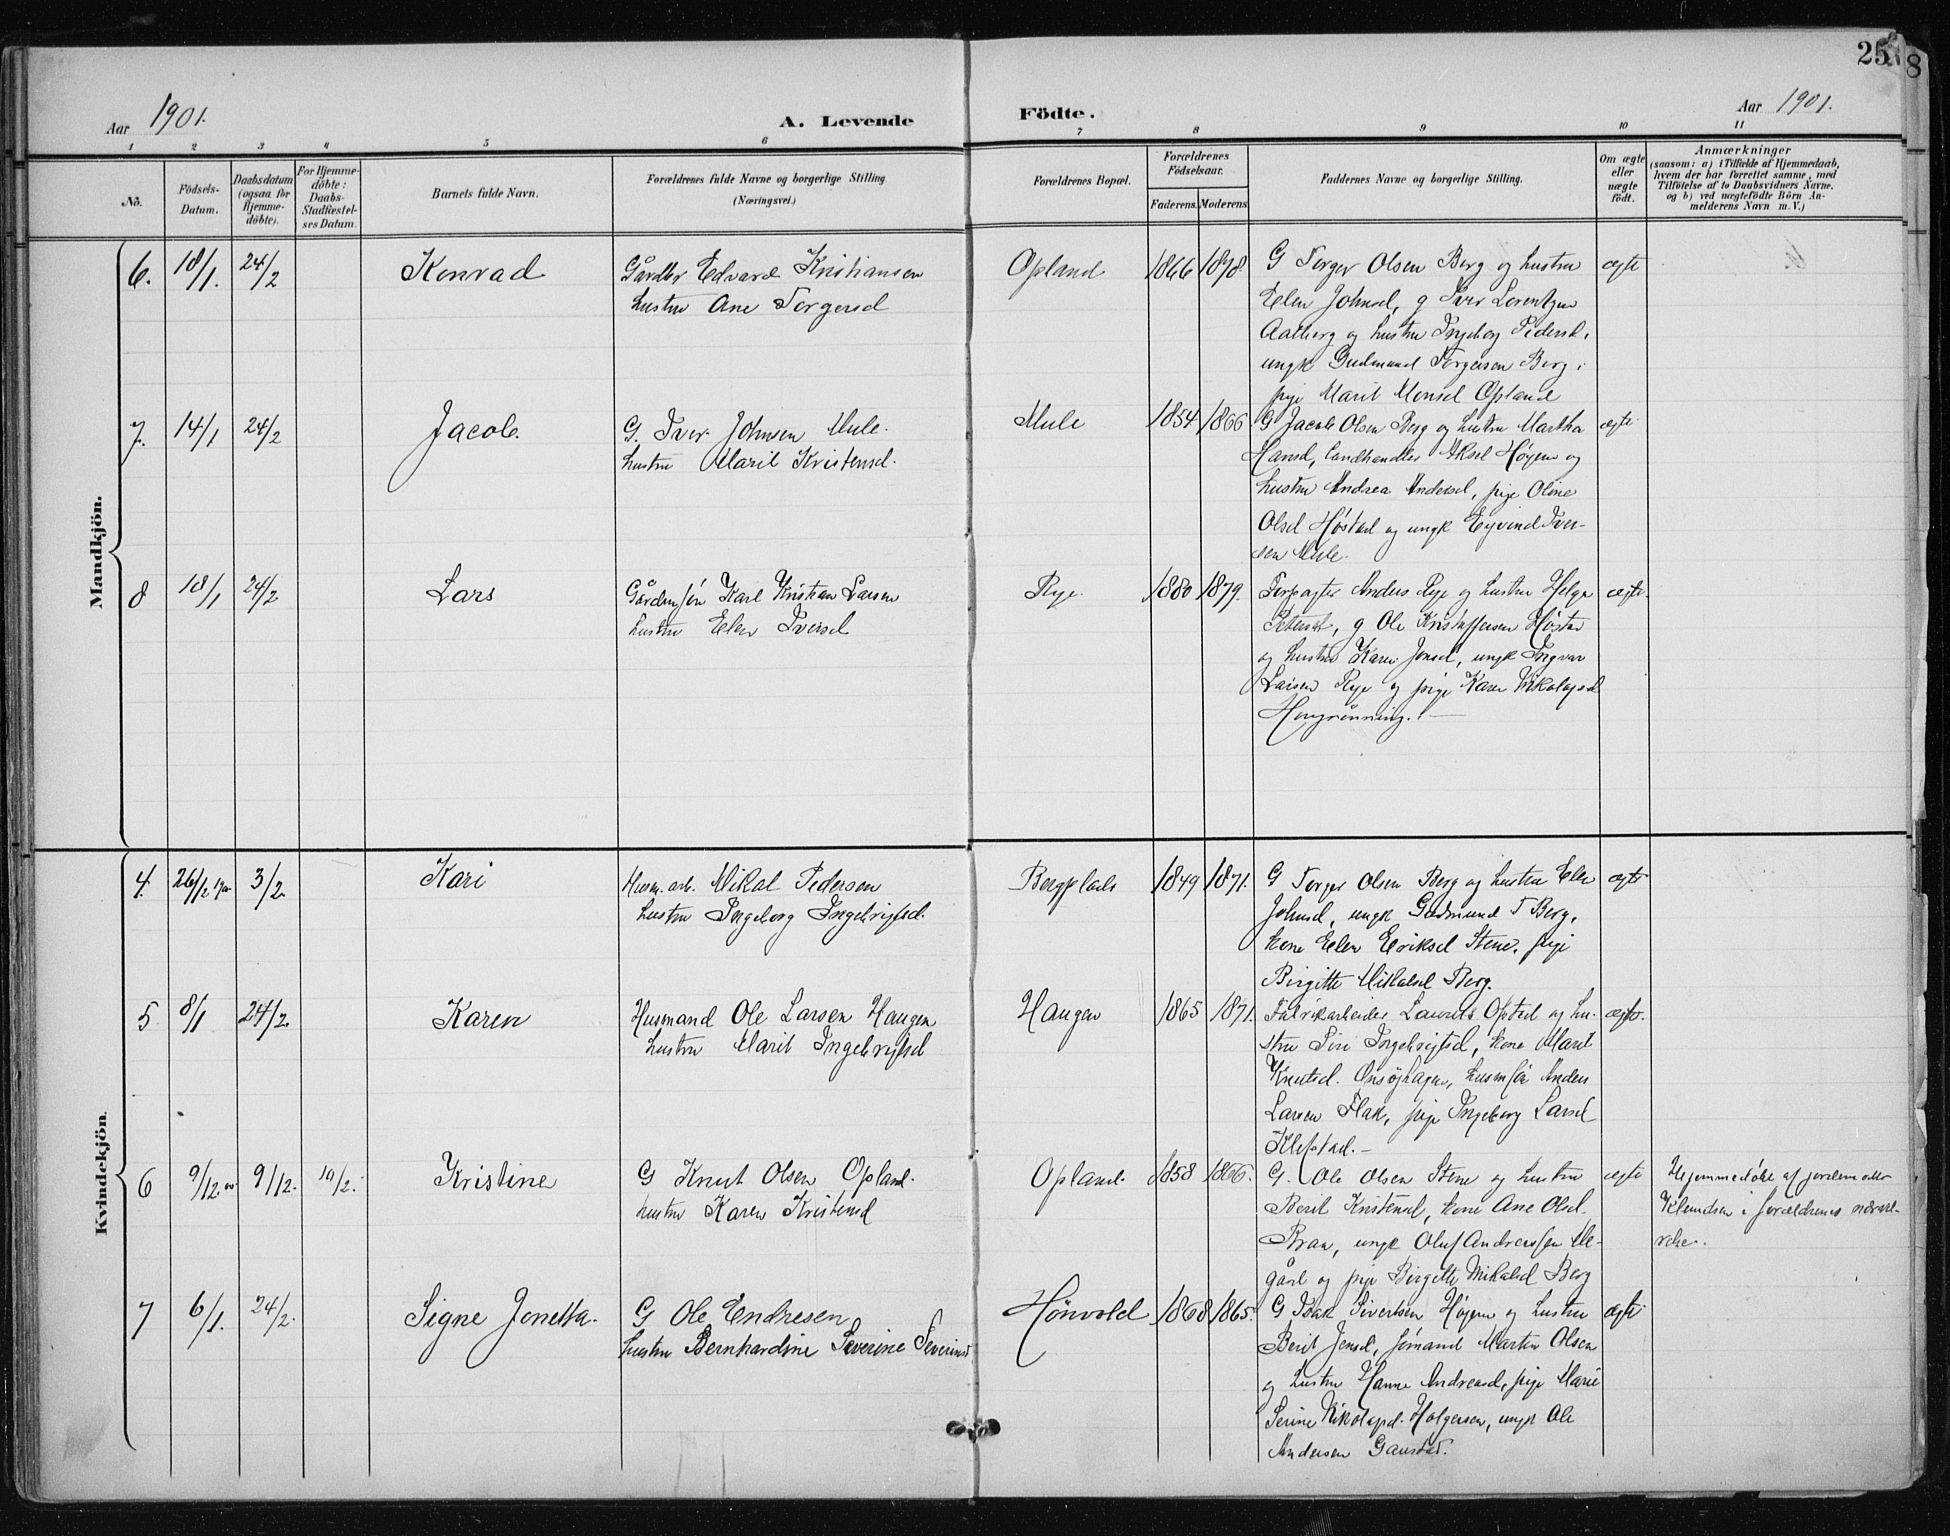 25
8
Aar 1901.
A. Levende Födte.
Aar 1901.
1 2 3 4 5 6 7 8 9 10 11
No.
Födsels-
Datum.
Daabsdatum
(ogsaa for
Hjemme-
döbte).
For Hjemme-
döbte:
Daabs-
Stadfæstel-
ses Datum.
Barnets fulde Navn.
Forældrenes fulde Navne og borgerlige Stilling.
(Næringsvei.)
Forældrenes Bopæl.
Forældrenes
Födselsaar.
Faderens. Moderens
Faddernes Navne og borgerlige Stilling.
Om ægte
eller
uægte
födt.
Anmærkninger
(saasom: a) i Tilfælde af Hjemmedaab,
hvem der har forrettet samme, med
Tilföielse af to Daabsvidners Navne,
og b) ved uægtefödte Börn An-
melderens Navn m. V.)
Mandkjön.
6. 18/1. 24/2 Konrad
Gårdbr Edvard Kristiansen
hustru Ane Torgersd
Opland 1866 1878.
G Torger Olsen Berg og hustru
Elen Johnsd, g Iver Lorentzen
Aalberg og hustru Ingeborg Pedersd.
ungk Gudmund Torgersen Berg
pige Marit Monsd Opland
ægte
7. 14/1 24/2 Jacob.
G. Iver Johnsen Mule.
hustru Marit Kristensd.
Mule 1854 1866
G Jacob Olsen Berg og hustru Martha
Hansd, landhandler Aksel Høyem og
hustru Andrea Andersd, pige Oline
Olsd Høstad og ungk Eyvind Iver-
sen Mule.
ægte
8 18/1 24/2 Lars
Gårdmsøn Karl Kristian Larsen
hustru Elen Iversd
Rye. 1880 1879.
Forpagter Anders Rye og hustru Helga
Petersd, g Ole Kristoffersen Høstad
og hustru Karen Jonsd, ungk Ingvar
Larsen Rye og pige Karen Nikolaysd
Haugrønning.
ægte.
Kvindekjön.
4. 26/12 1900 3/2. Kari
Husm. arb. Mikal Pedersen
hustru Ingeborg Ingebrigtsd.
Bergplads 1849 1871.
G Torger Olsen Berg og hustru Elen
Johnsd, ungk Gudmund T Berg,
kone Elen Eriksd Stene, pige
Birgitte Mikalsd Berg.
ægte
5 8/1 24/2. Karen
Husmand Ole Larsen Haugen
hustru Marit Ingebrigtsd
Haugen 1865 1871.
Fabrikarbeider Laurits Opstad og hu-
stru Siri Ingebrigtsd, kone Marit
Knutsd. Ønsøyhagen, husmsøn Anders
Larsen Flak, pige Ingeborg Larsd
Klefstad.
ægte.
6 9/12.00 9/12. 10/2. Kristine
G Knut Olsen Opland.
hustru Karen Kristensd
Opland. 1858 1866.
G. Ole Olsen Stene og hustru
Berit Kristensd, kone Ane Olsd.
Braa, ungk Oluf Andreassen Me-
gård og pige Birgitte Mikalsd Berg
ægte
Hjemmedøbt af jordemoder
Klemetsen i forældrenes nærvæ-
relse.
7 6/1. 24/2. Signe Jonetta.
G Ole Endresen
hustru Bernhardine Severine Severinsd.
Hönvold 1868 1865.
G Isak Sivertsen Høyem og hustru
Berit Jensd, sømand Martin Olsen
og hustru Hanna Andreasd, pige Marie
Serine Nikolaysd. Holgersen, ungk Ole
Andersen Gaustad.
ægte